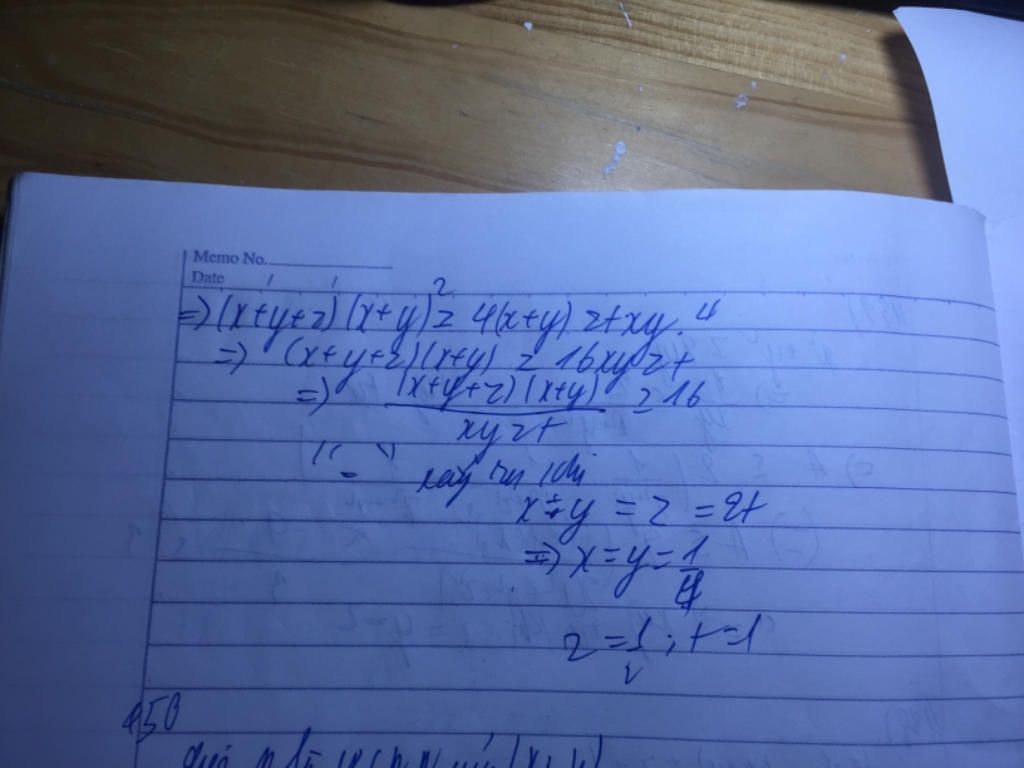 Memo No.
Date / /
=> (x+y+z)(x+y)² ≥ 4(x+y)zt xy.4
=> (x+y+z)(x+y) ≥ 16xyzt
=> (x+y+z)(x+y) / xyzt ≥ 16
"=" xảy ra khi
x=y = z = 2t
=> x=y=1/4
z=1/2; t=1
450